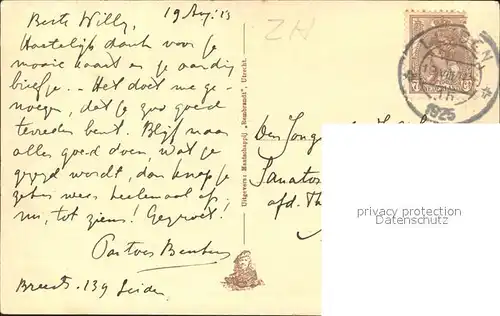 19 Aug. 25
Beste Willy,
Hartelijk dank voor je
mooie kaart en je aardig
briefje. - Het doet me ge-
noegen, dat je zoo goed
tevreden bent. Blijf maar
alles goed doen, wat je
gezegd wordt, dan knap je
zeker weer heelemaal op.
nu, tot ziens! Gegroet!
Pastoor
Breestr. 139 Leiden
ZH
Uitgevers: Maatschappij „Rembrandt", Utrecht.
LEIDEN
1925
Den Jonge
Sanato
afd. Th
privacy protection
Datenschutz